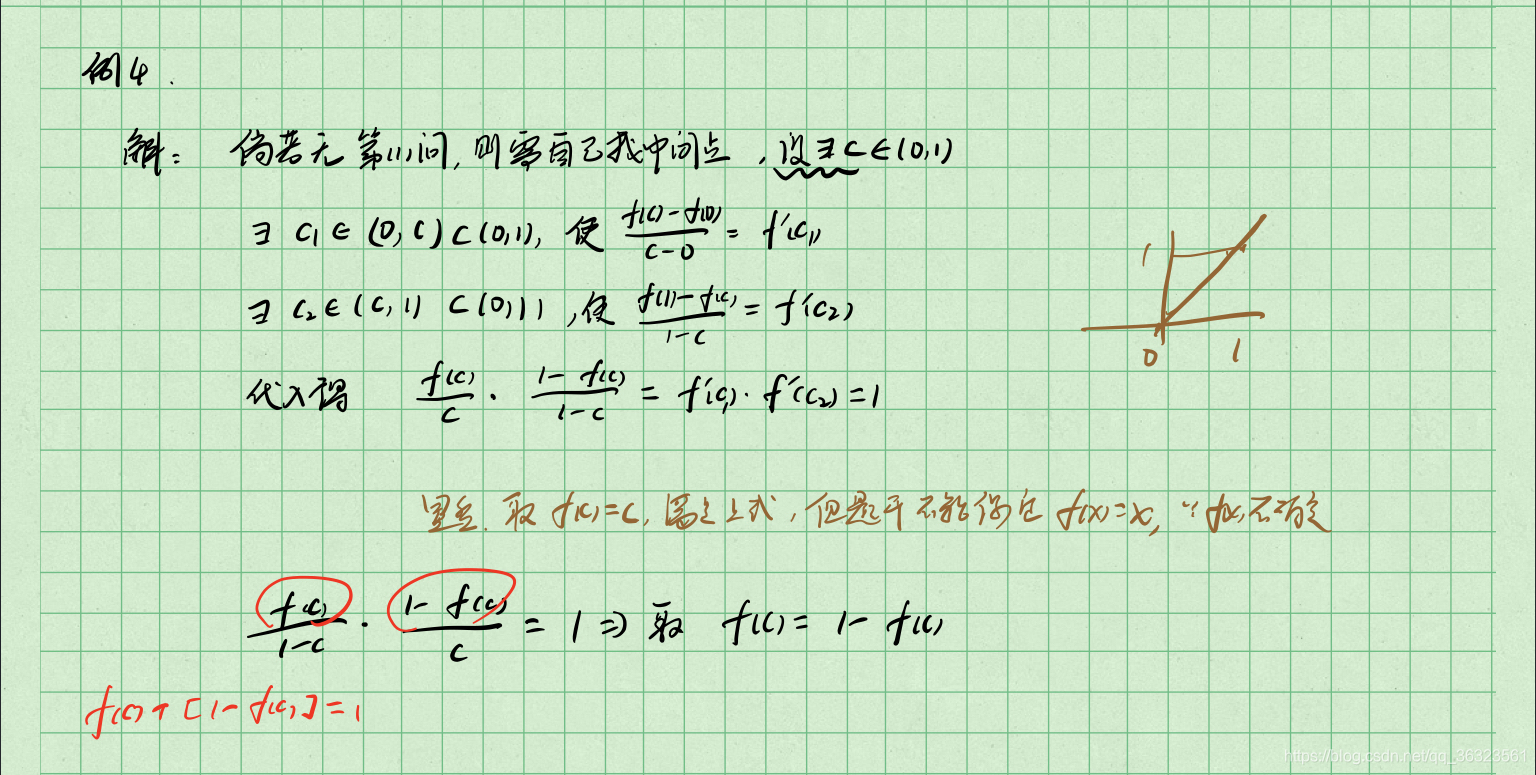 例4.
解: 倘若无第(1)问, 则需自己找中间点, 设∃ c∈(0,1)
∃ c₁∈(0,c)⊂(0,1), 使 (f(c)-f(0))/(c-0) = f'(c₁)
∃ c₂∈(c,1) ⊂(0,1), 使 (f(1)-f(c))/(1-c) = f'(c₂)
代入得 f(c)/c · (1-f(c))/(1-c) = f'(c₁)·f'(c₂)=1
取 f(c)=c, 上式, 但是并不能保证 f(x)=x, ∵ f(x)不确定
f(c)/(1-c) · (1-f(c))/c = 1 ⇒ 取 f(c) = 1-f(c)
f(c)+[1-f(c)]=1
1
0 1
https://blog.csdn.net/qq_36323561